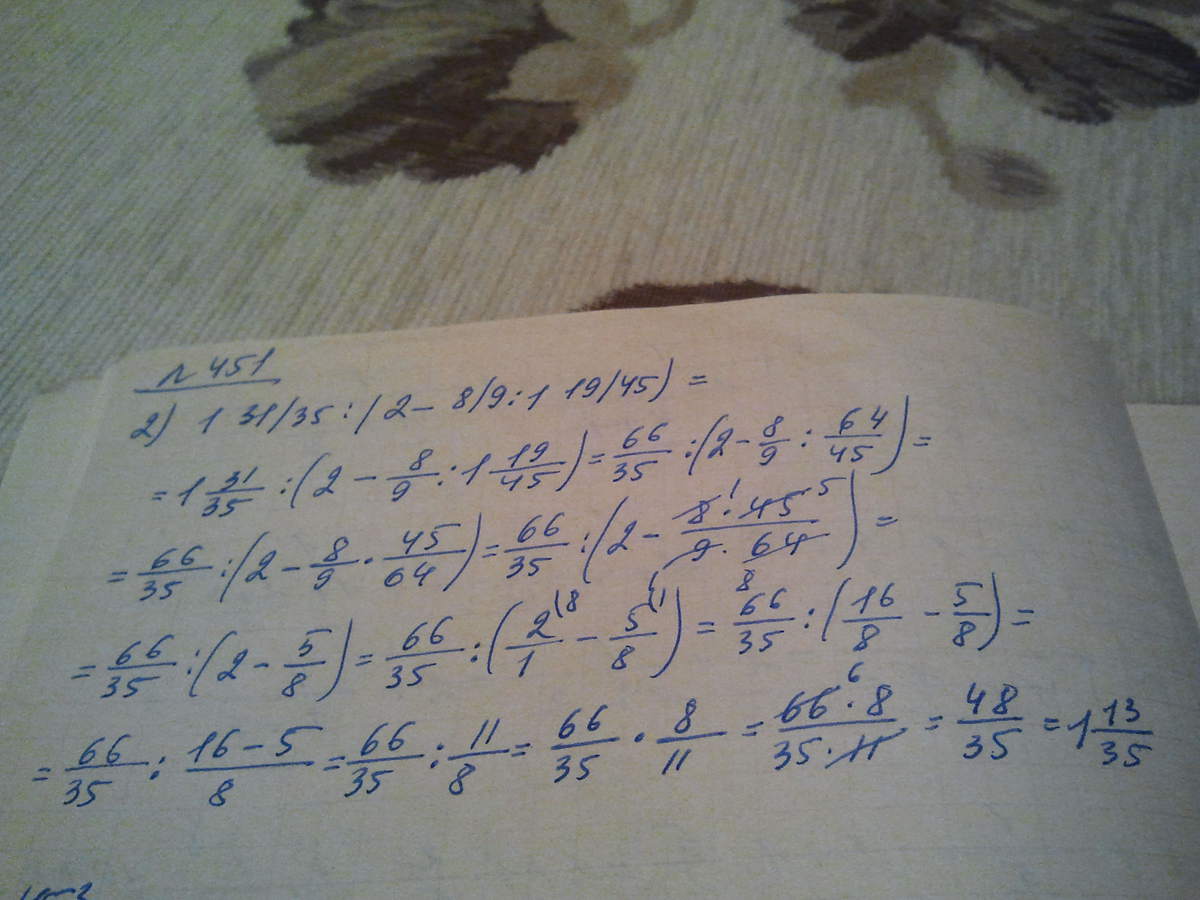 № 451
2) 1 31/35 : (2 - 8/9 : 1 19/45) =
= 1 31/35 : (2 - 8/9 : 1 19/45) = 66/35 : (2 - 8/9 : 64/45) =
= 66/35 : (2 - 8/9 · 45/64) = 66/35 : (2 - 8 1 · 45 5 / 9 1 · 64 8) =
= 66/35 : (2 - 5/8) = 66/35 : (2/1 (8 - 5/8 (1) = 66/35 : (16/8 - 5/8) =
= 66/35 : 16-5/8 = 66/35 : 11/8 = 66/35 · 8/11 = 66 6 · 8 / 35 · 11 = 48/35 = 1 13/35